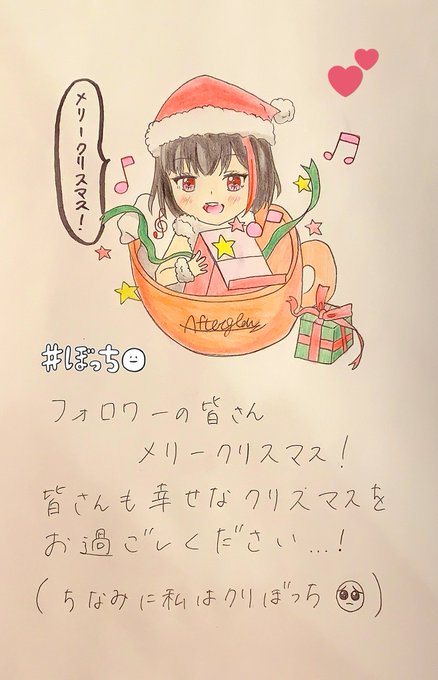 メリークリスマス!
Afterglow
#ぼっち
フォロワーの皆さん
メリークリスマス!
皆さんも幸せなクリスマスを
お過ごしください…!
(ちなみに私はクリぼっち🥺)